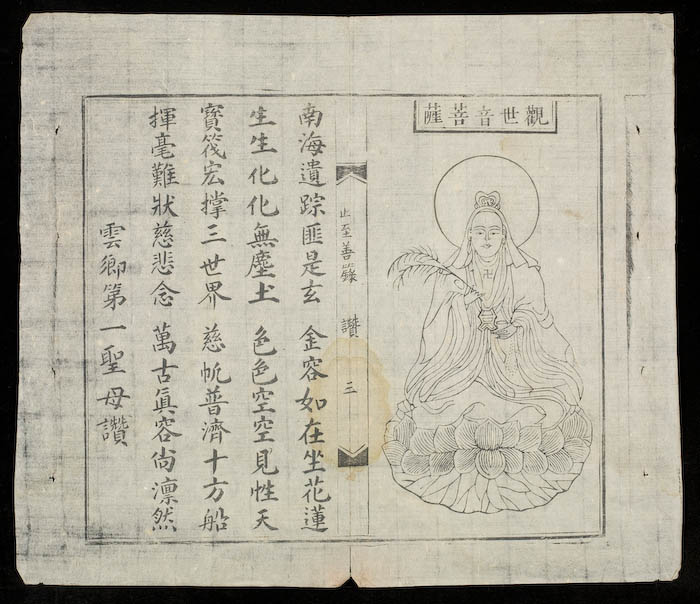 觀世音菩薩
止至善籙 讚 三
南海遺踪匪是玄 金容如在坐花蓮
生生化化無塵土 色色空空見性天
寳筏宏撑三世界 慈帆普濟十方船
揮毫難狀慈悲念 萬古眞容尙凛然
雲鄉第一聖母讚